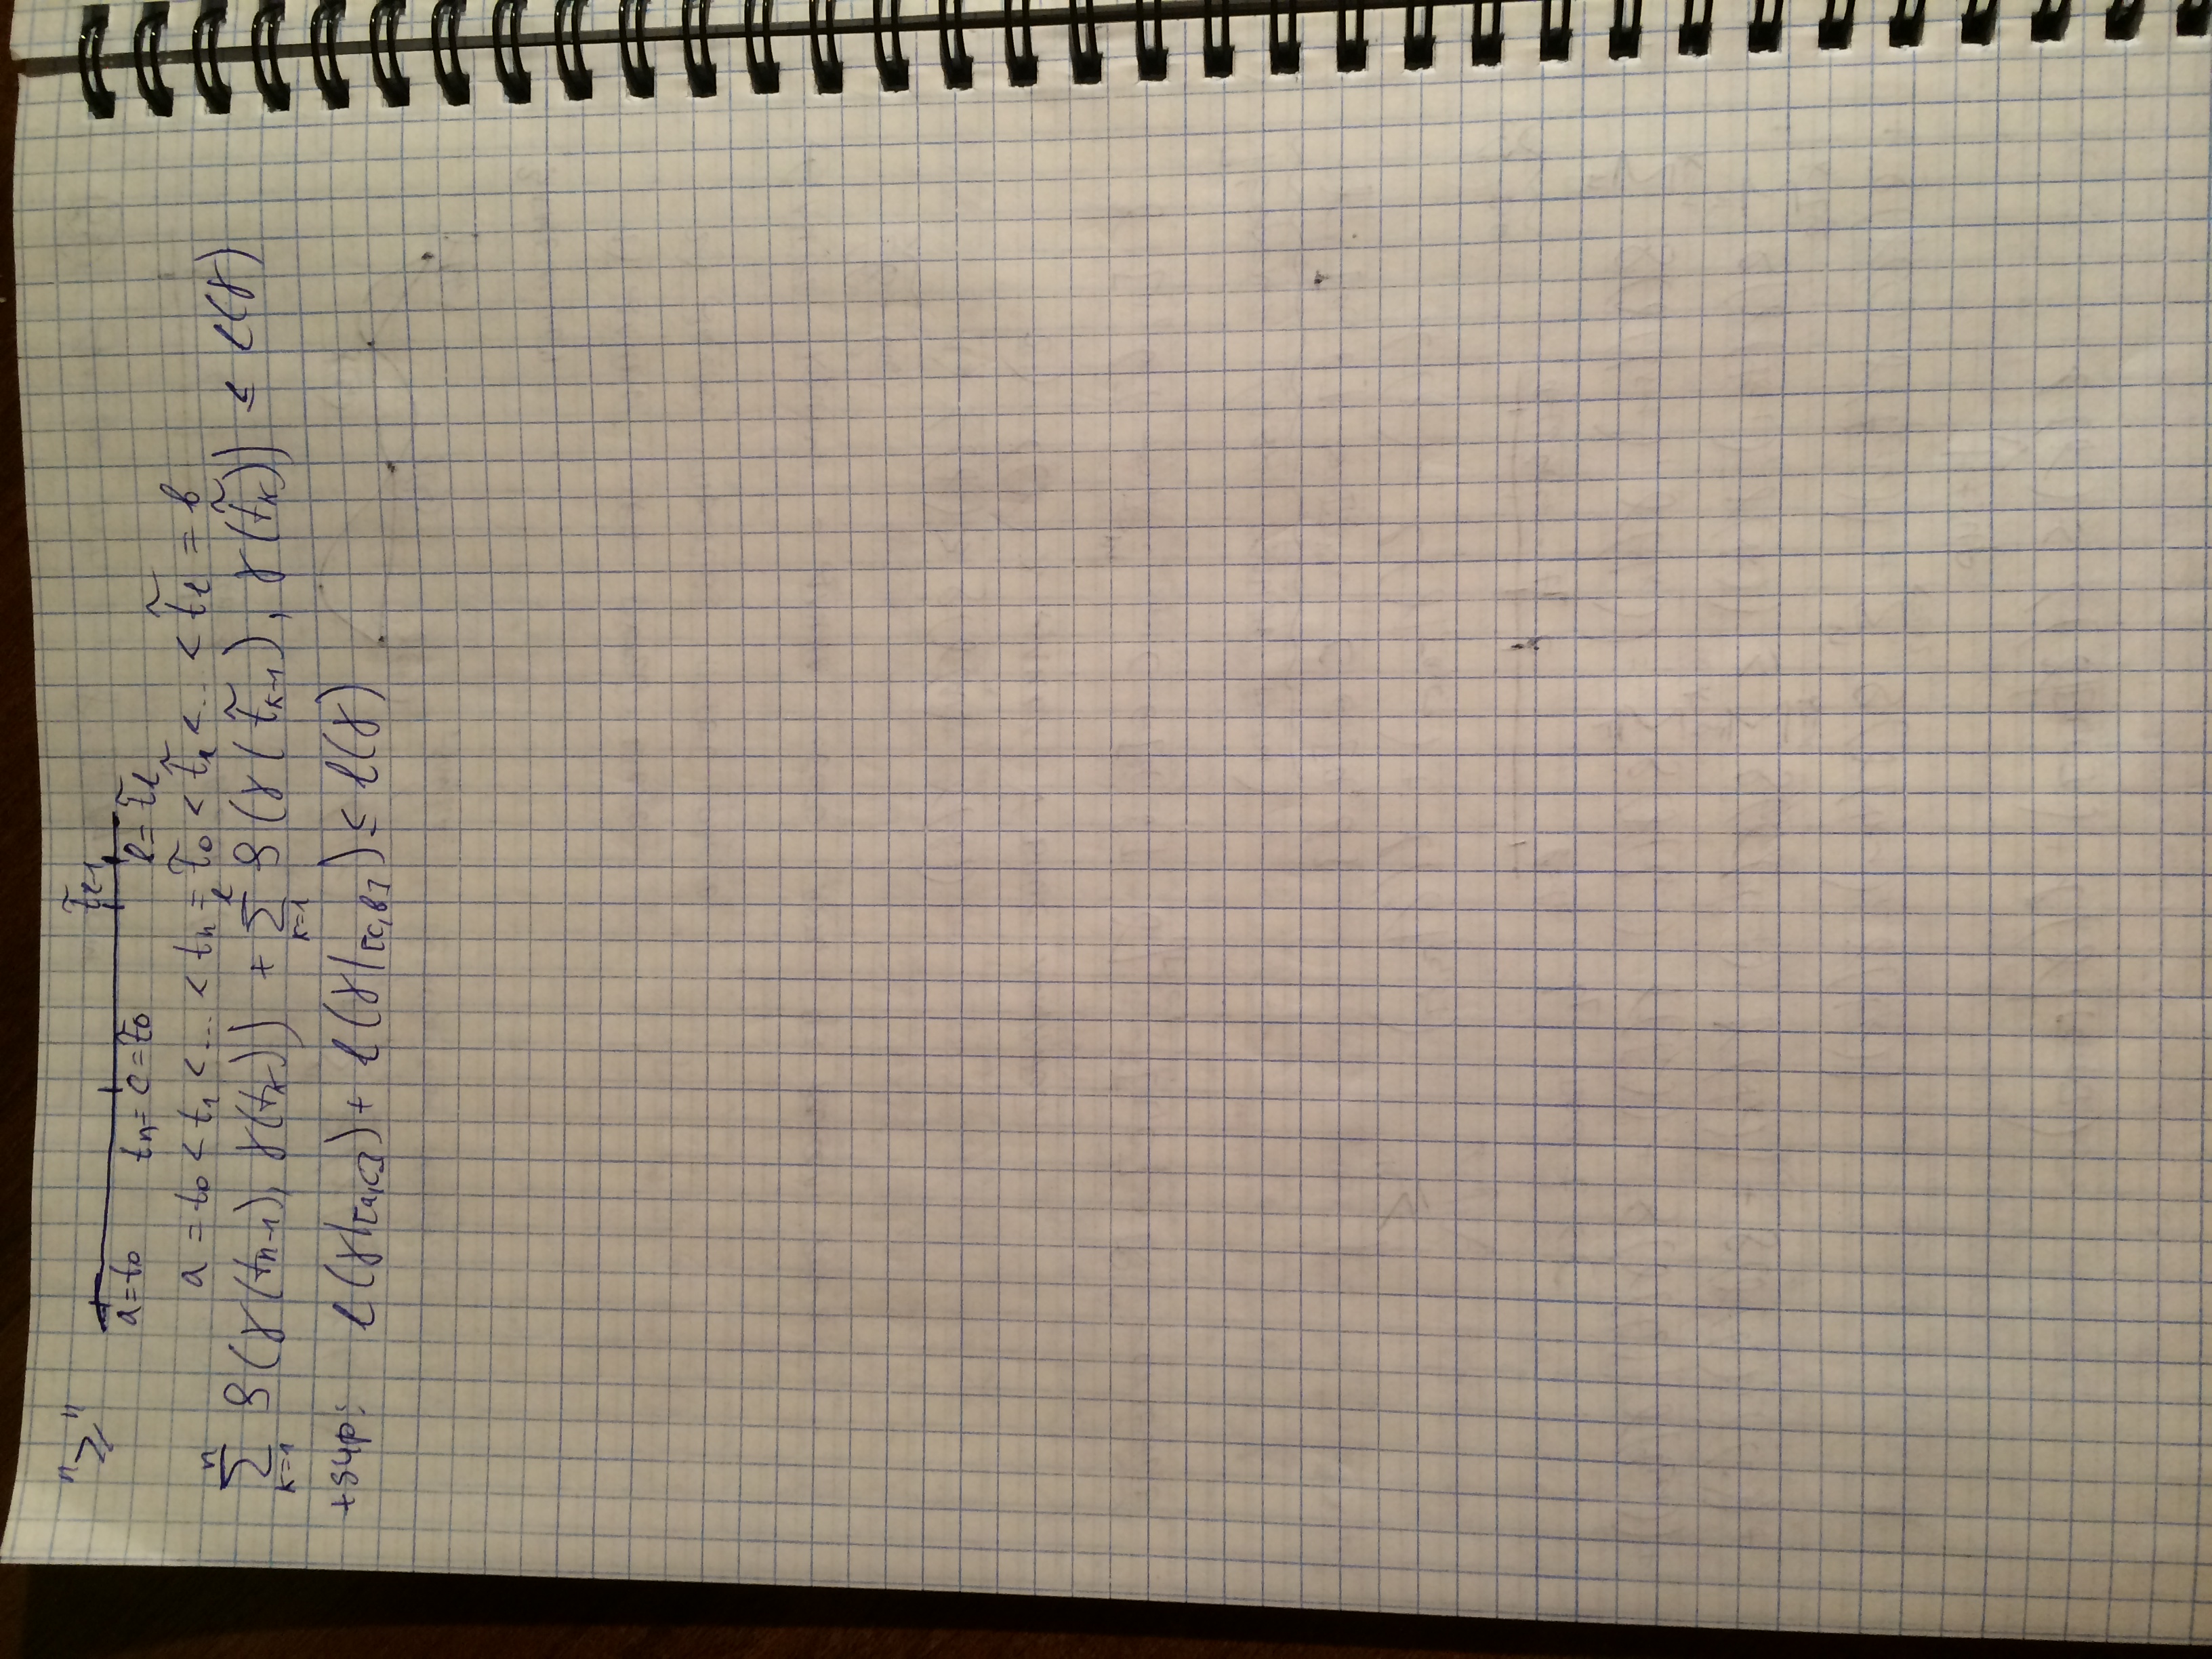 "≥"
t̃ₗ₋₁
a = t₀ tₙ = c = t̃₀ b = t̃ₗ
a = t₀ < t₁ < ... < tₙ = t̃₀ < t̃₁ < ... < t̃ₗ = b
∑ₖ₌₁ⁿ ρ(γ(tₙ₋₁), γ(tₖ)) + ∑ₖ₌₁ˡ ρ(γ(t̃ₖ₋₁), γ(t̃ₖ)) ≤ l(γ)
+sup: l(γ|[a,c]) + l(γ|[c,b]) ≤ l(γ)